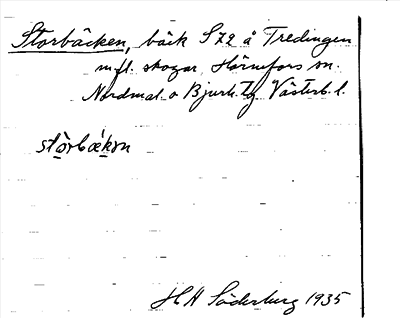 Storbäcken, bäck S72 å Tredingen
m.fl. skogar, Hörnefors sn.
Nordmal. o Bjurh. tg Västerb. l.
stòrbǽkɷn
H H Söderburg 1935